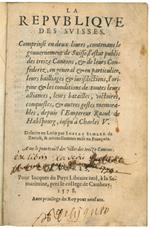 LA
REPVBLIQVE
DES SVISSES.
Comprinse en deux liures, contenans le
gouuernement de Suisse, l'estat public
des treize Cantons, & de leurs Con-
federez, en general & en particulier,
leurs bailliages & iurisdictions, l'ori-
gine & les conditions de toutes leurs
alliances, leurs batailles, victoires,
conquestes, & autres gestes memora-
bles, depuis l'Empereur Raoul de
Habspourg, iusqu'à Charles V.
Descrite en Latin par IOSIAS SIMLER de
Zurich, & nouuellement mise en François.
Auec le pourtraict des villes des treize Cantons.
Pour Iaques du Puys Libraire iuré, à la Sa-
maritaine, pres le college de Cambray.
1578.
Auec priuilege du Roy pour neuf ans.